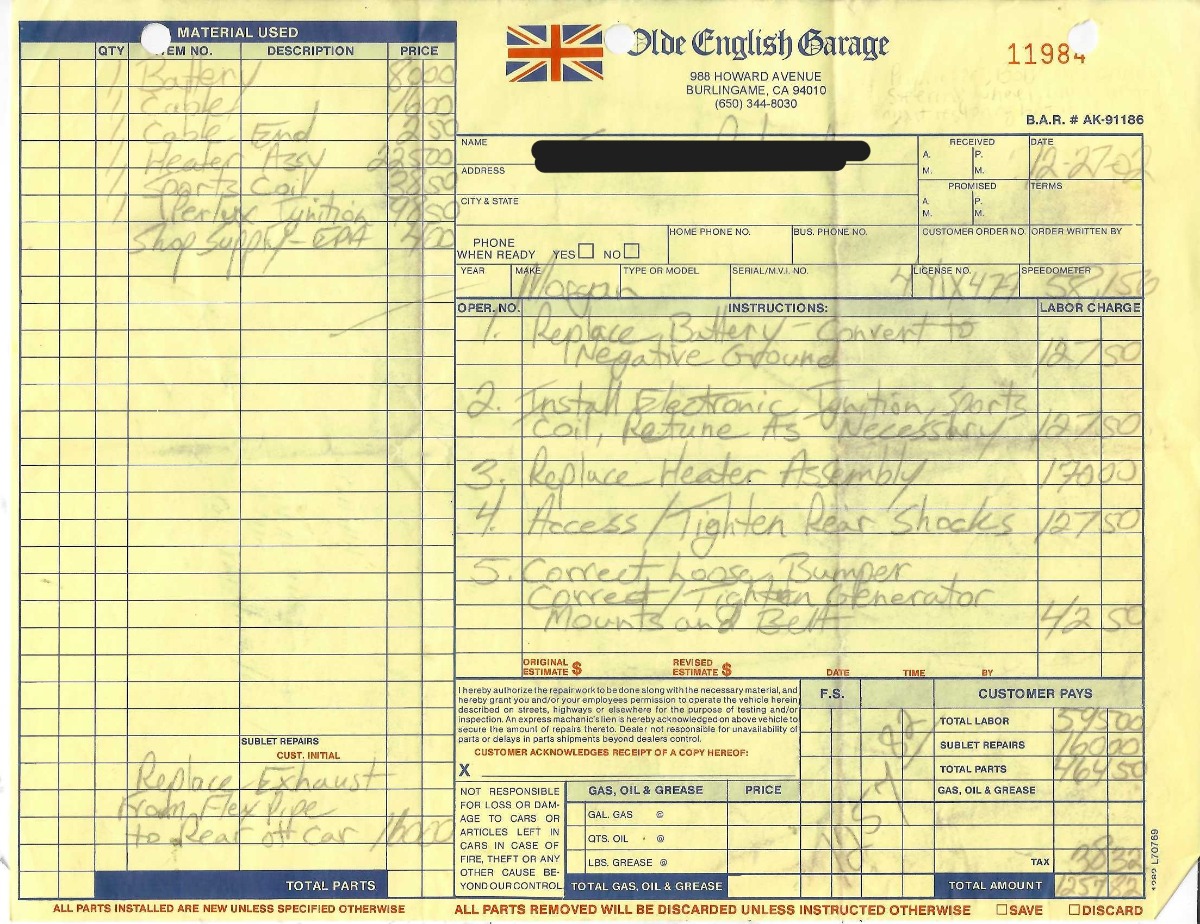 MATERIAL USED
QTY ITEM NO. DESCRIPTION PRICE
1 Battery 80 00
1 Cable 16 00
1 Cable End 2 50
1 Heater Assy 225 00
1 Sports Coil 38 50
1 Perlux Ignition
Shop Supply - EPA 4 00
SUBLET REPAIRS
CUST. INITIAL
Replace Exhaust
From Flex Pipe
to Rear off car 160 00
TOTAL PARTS
ALL PARTS INSTALLED ARE NEW UNLESS SPECIFIED OTHERWISE
Olde English Garage
988 HOWARD AVENUE
BURLINGAME, CA 94010
(650) 344-8030
11984
B.A.R. # AK-91186
NAME
ADDRESS
CITY & STATE
RECEIVED
A. M. P. M.
DATE
12-27-02
PROMISED
A. M. P. M.
TERMS
PHONE
WHEN READY YES NO
HOME PHONE NO. BUS. PHONE NO. CUSTOMER ORDER NO. ORDER WRITTEN BY
YEAR MAKE TYPE OR MODEL SERIAL/M.V.I. NO. LICENSE NO. SPEEDOMETER
Morgan 58,150
OPER. NO. INSTRUCTIONS: LABOR CHARGE
1. Replace Battery - Convert to
Negative Ground 127 50
2. Install Electronic Ignition, Sports
Coil, Retune As Necessary 127 50
3. Replace Heater Assembly 170 00
4. Access/Tighten Rear Shocks 127 50
5. Correct Loose Bumper
Correct/Tighten Generator
Mounts and Belt 42 50
ORIGINAL ESTIMATE $ REVISED ESTIMATE $ DATE TIME BY
I hereby authorize the repair work to be done along with the necessary material, and
hereby grant you and/or your employees permission to operate the vehicle herein
described on streets, highways or elsewhere for the purpose of testing and/or
inspection. An express machanic's lien is hereby acknowledged on above vehicle to
secure the amount of repairs thereto. Dealer not responsible for unavailability of
parts or delays in parts shipments beyond dealers control.
CUSTOMER ACKNOWLEDGES RECEIPT OF A COPY HEREOF:
X
NOT RESPONSIBLE
FOR LOSS OR DAM-
AGE TO CARS OR
ARTICLES LEFT IN
CARS IN CASE OF
FIRE, THEFT OR ANY
OTHER CAUSE BE-
YOND OUR CONTROL
GAS, OIL & GREASE PRICE
GAL. GAS @
QTS. OIL @
LBS. GREASE @
TOTAL GAS, OIL & GREASE
F.S.
CUSTOMER PAYS
TOTAL LABOR 595 00
SUBLET REPAIRS 160 00
TOTAL PARTS 464 50
GAS, OIL & GREASE
TAX 38 32
TOTAL AMOUNT 1257 82
ALL PARTS REMOVED WILL BE DISCARDED UNLESS INSTRUCTED OTHERWISE SAVE DISCARD